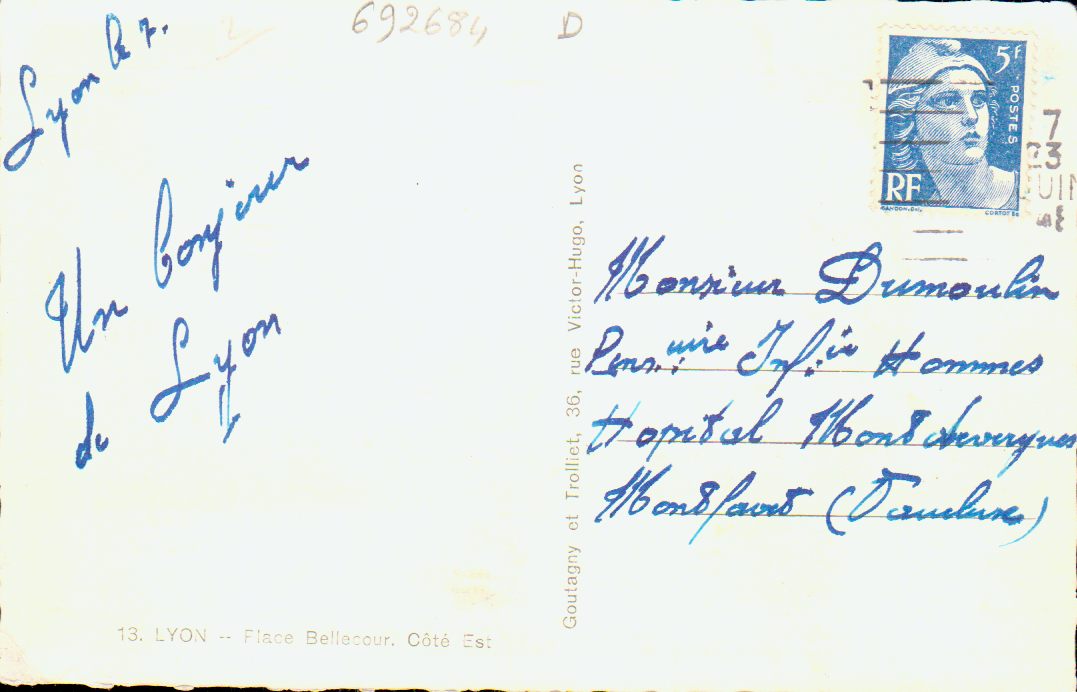 692684 D
Lyon le 7.
Un bonjour
de Lyon
13. LYON -- Place Bellecour. Côté Est
Goutagny et Trolliet, 36, rue Victor-Hugo, Lyon
5F
POSTES
RF
GANDON.DEL.
CORTOT SC
7
23
JUIN
Monsieur Dumoulin
Pens: Inf:ie Hommes
Hopital Montdevergues
Montfavet (Vaucluse)